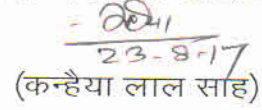 23-8-17
(कन्हैया लाल साह)